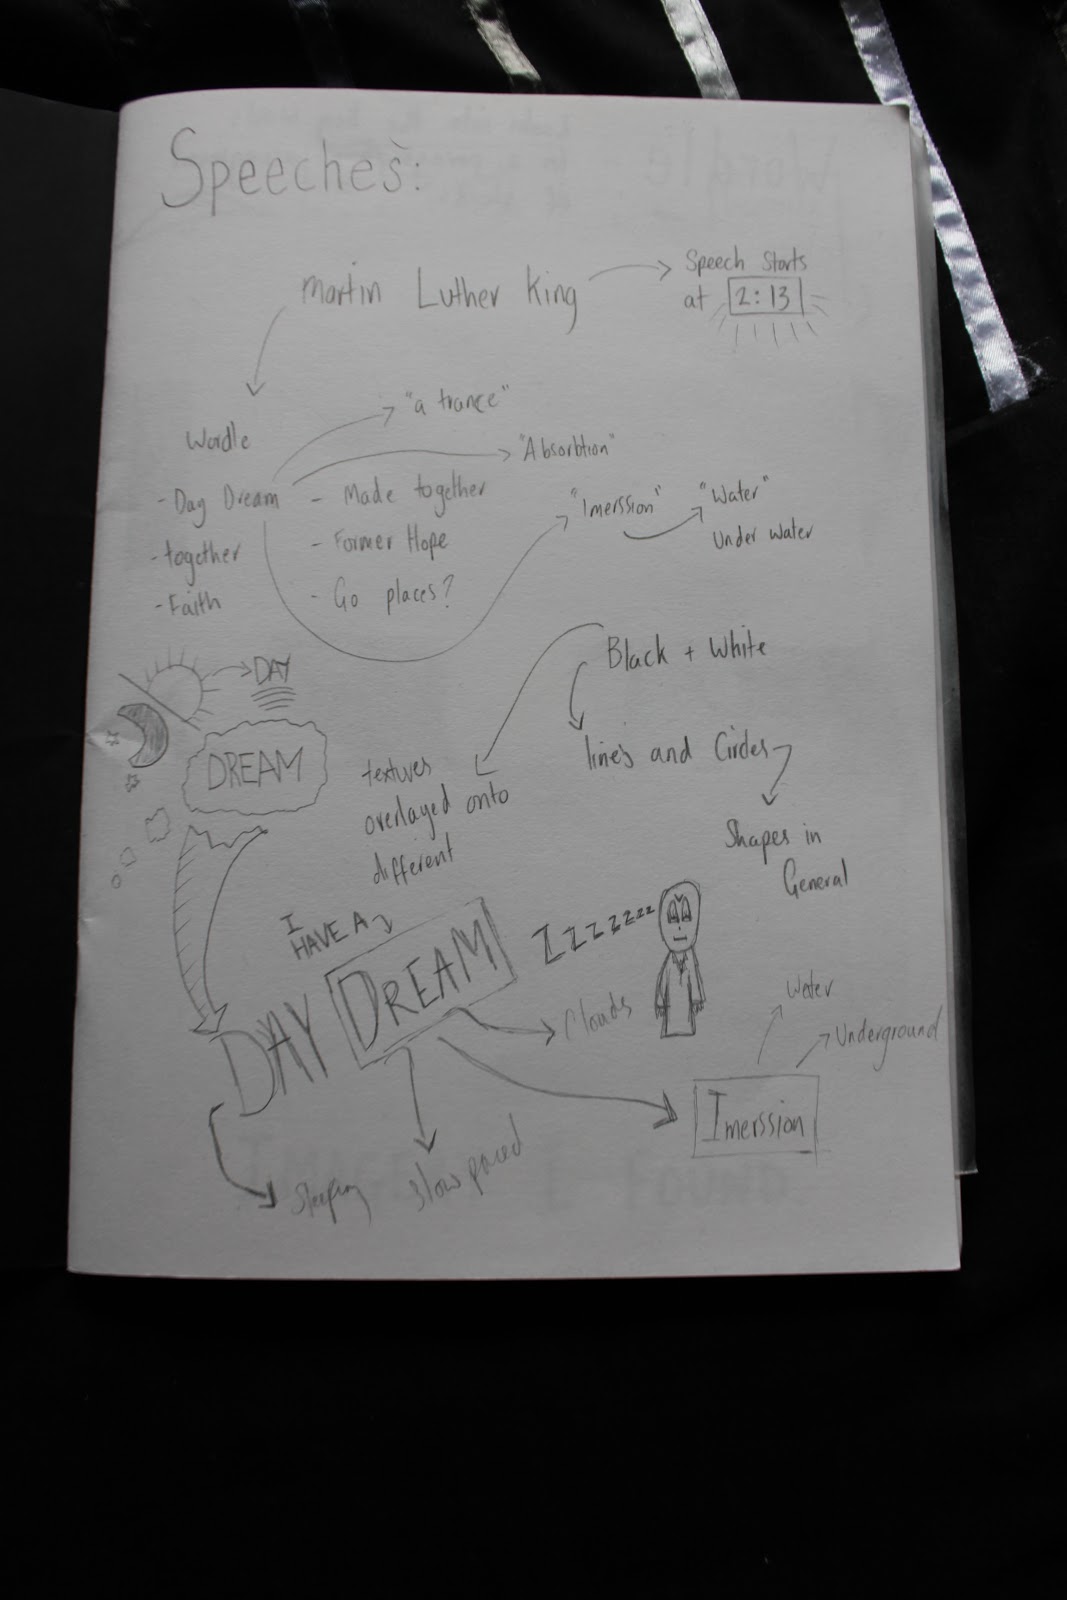 Speeches:
Martin Luther King
Speech Starts
at 2:13
Wordle
"a trance"
"Absorbtion"
- Day Dream
- together
- Faith
- Made together
- Former Hope
- Go places?
"Imerssion"
"Water"
Under water
Black + White
lines and Circles
Shapes in
General
textures
overlayed onto
different
DAY
DREAM
I
HAVE A
DAY DREAM
ZZZZZZzzz
Clouds
Water
Underground
Imerssion
Sleeping
Slow paced